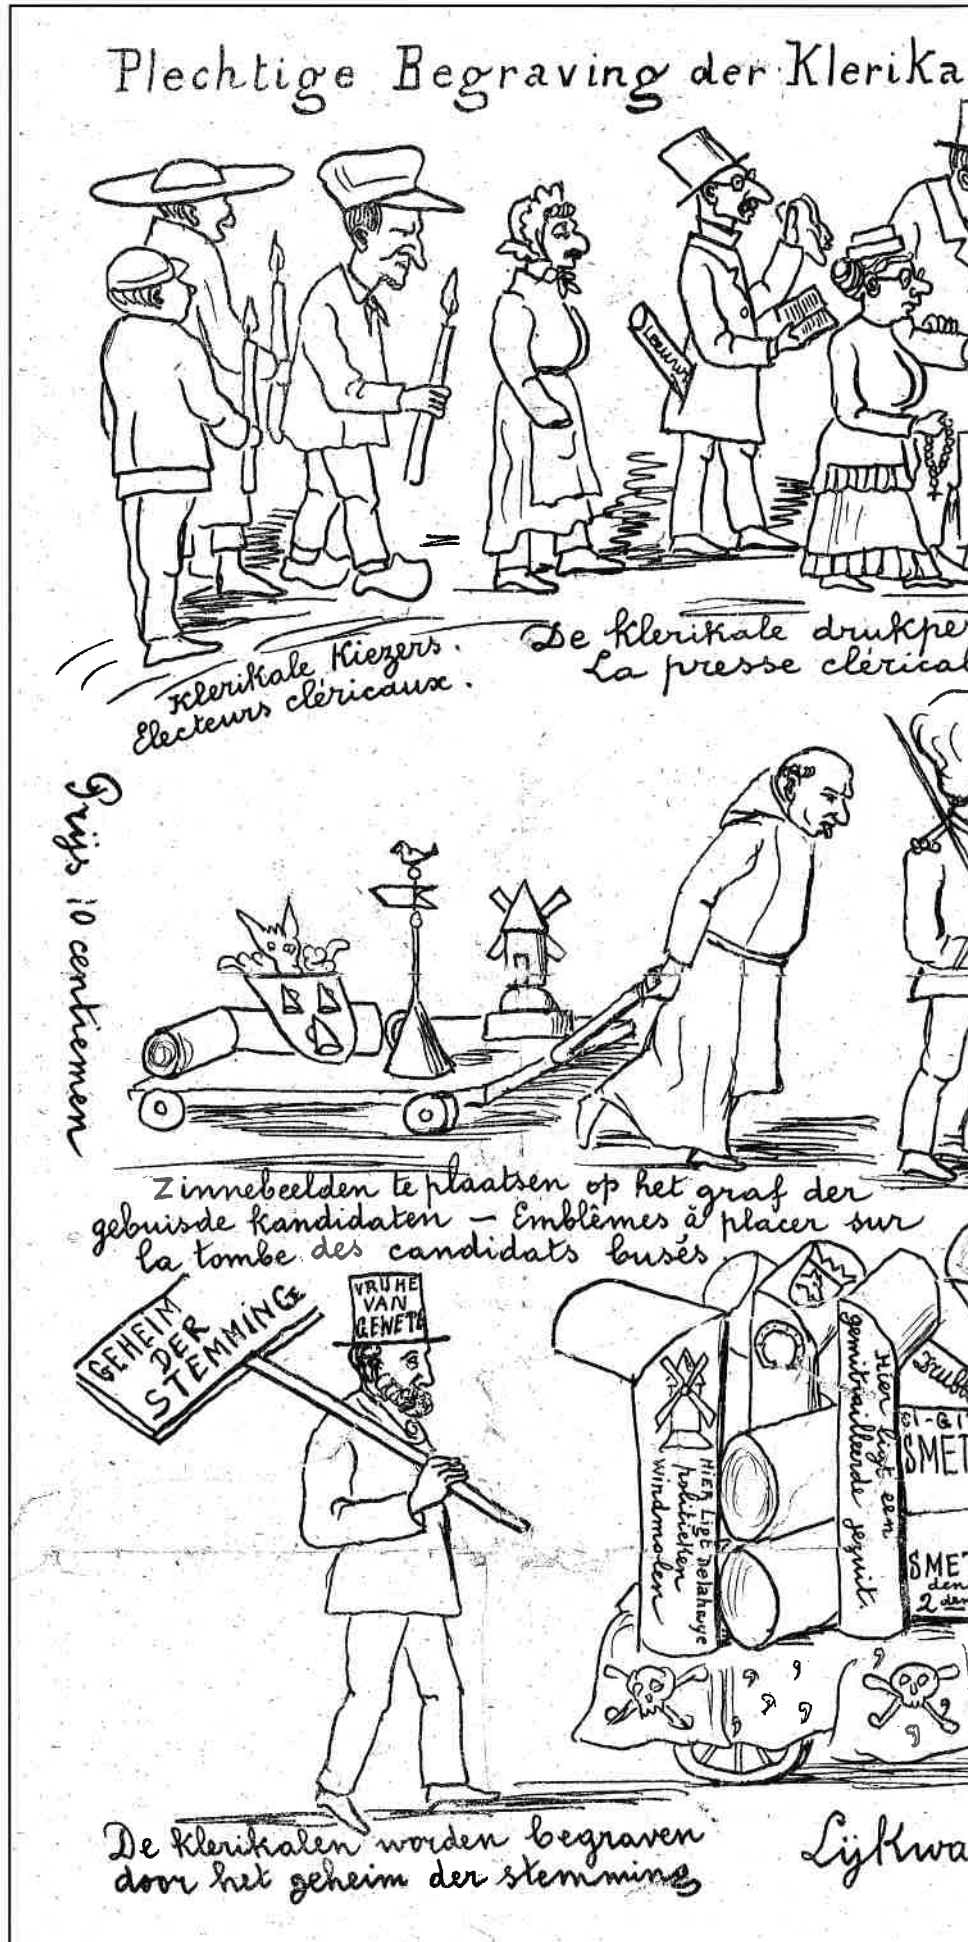 Plechtige Begraving der Klerika
Klerikale Kiezers.
Electeurs cléricaux.
De Klerikale drukper
La presse clérical
Prijs 10 centiemen
Zinnebeelden te plaatsen op het graf der
gebuisde kandidaten — Emblêmes à placer sur
la tombe des candidats busés
GEHEIM
DER
STEMMING
VRIJHE
VAN
GEWETE
HIER Ligt Delahaye
politieken
windmolen
Hier ligt een
gemitrailleerde jezuit.
CI-GI
SMET
SMET
den
2den
De Klerikalen worden begraven
door het geheim der stemming
Lijkwa